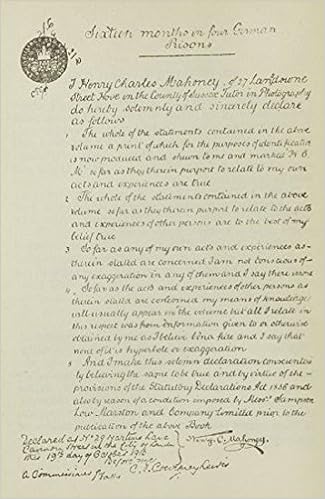 Sixteen months in four German
Prisons
I Henry Charles Mahoney, of 27 Lansdowne
Street Hove in the County of Sussex Tutor in Photography
do hereby solemnly and sincerely declare
as follows
1 The whole of the statements contained in the above
volume a print of which for the purposes of identification
is now produced and shewn to me and marked H. C.
M. so far as they therein purport to relate to my own
acts and experiences are true
2 The whole of the statements contained in the above
volume so far as they therein purport to relate to the acts
and experiences of other persons are to the best of my
belief true
3 So far as any of my own acts and experiences as
therein stated are concerned I am not conscious of
any exaggeration in any of them and I say there is none
4 So far as the acts and experiences of other persons as
therein stated are concerned my means of knowledge
will usually appear in the volume but all I relate in
this respect was from information given to or otherwise
obtained by me as I believe bona fide and I say that
none of it is hyperbole or exaggeration
And I make this solemn declaration conscientiously
believing the same to be true and by virtue of the
provisions of the Statutory Declarations Act 1835 and
also by reason of a condition imposed by Messrs. Sampson
Low Marston and Company Limited prior to the
publication of the above Book
Declared at No. 39 St Martins Lane
Cannon Street in the City of London
this 19th day of October 1916
Before me
Henry C. Mahoney.
C. F. Courtney Lewis
A Commissioner for Oaths